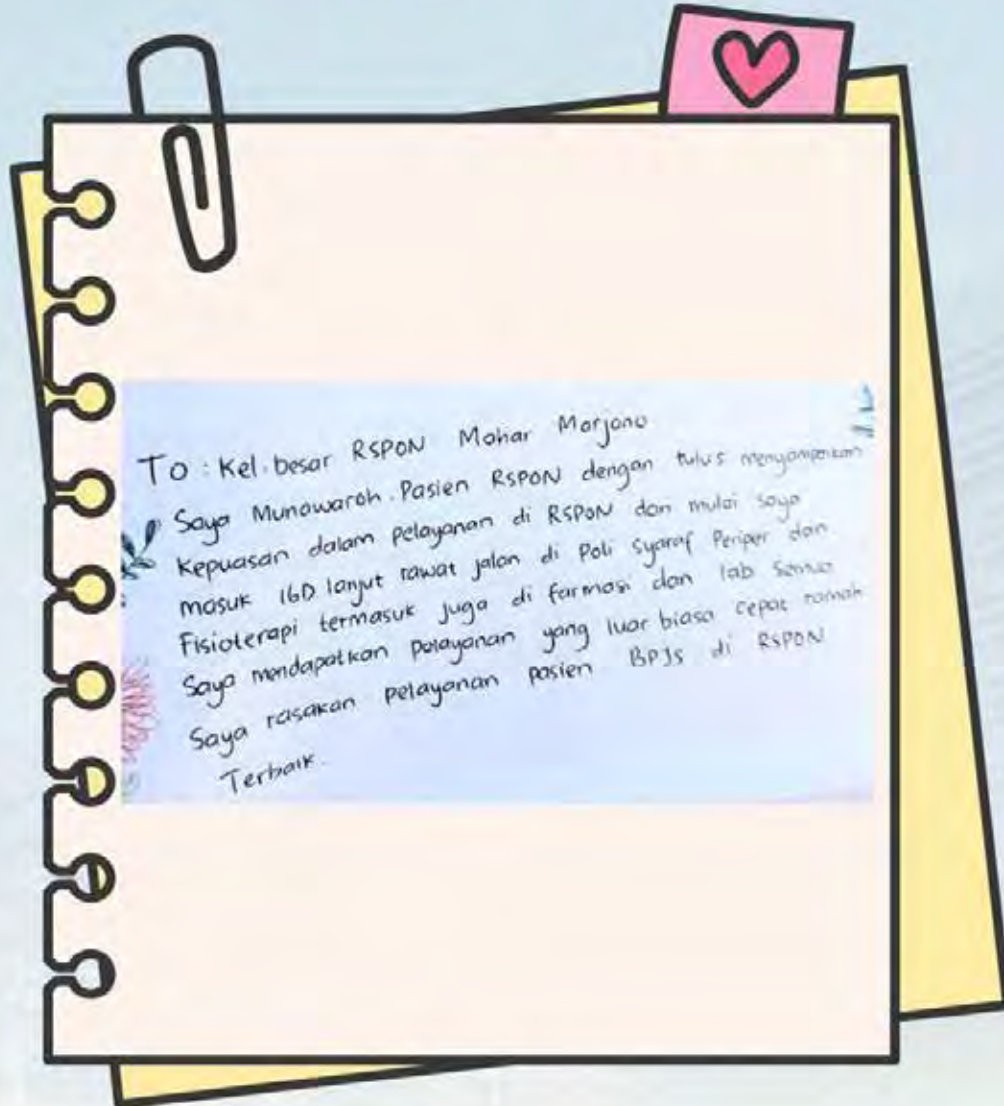 To : Kel. besar RSPON Mahar Marjono
Saya Munawaroh. Pasien RSPON dengan tulus menyampaikan
kepuasan dalam pelayanan di RSPON dan mulai saya
masuk IGD lanjut rawat jalan di Poli Syaraf Periper dan
Fisioterapi termasuk juga di farmasi dan lab semua
Saya mendapatkan pelayanan yang luar biasa cepat ramah
Saya rasakan pelayanan pasien BPJS di RSPON
Terbaik.